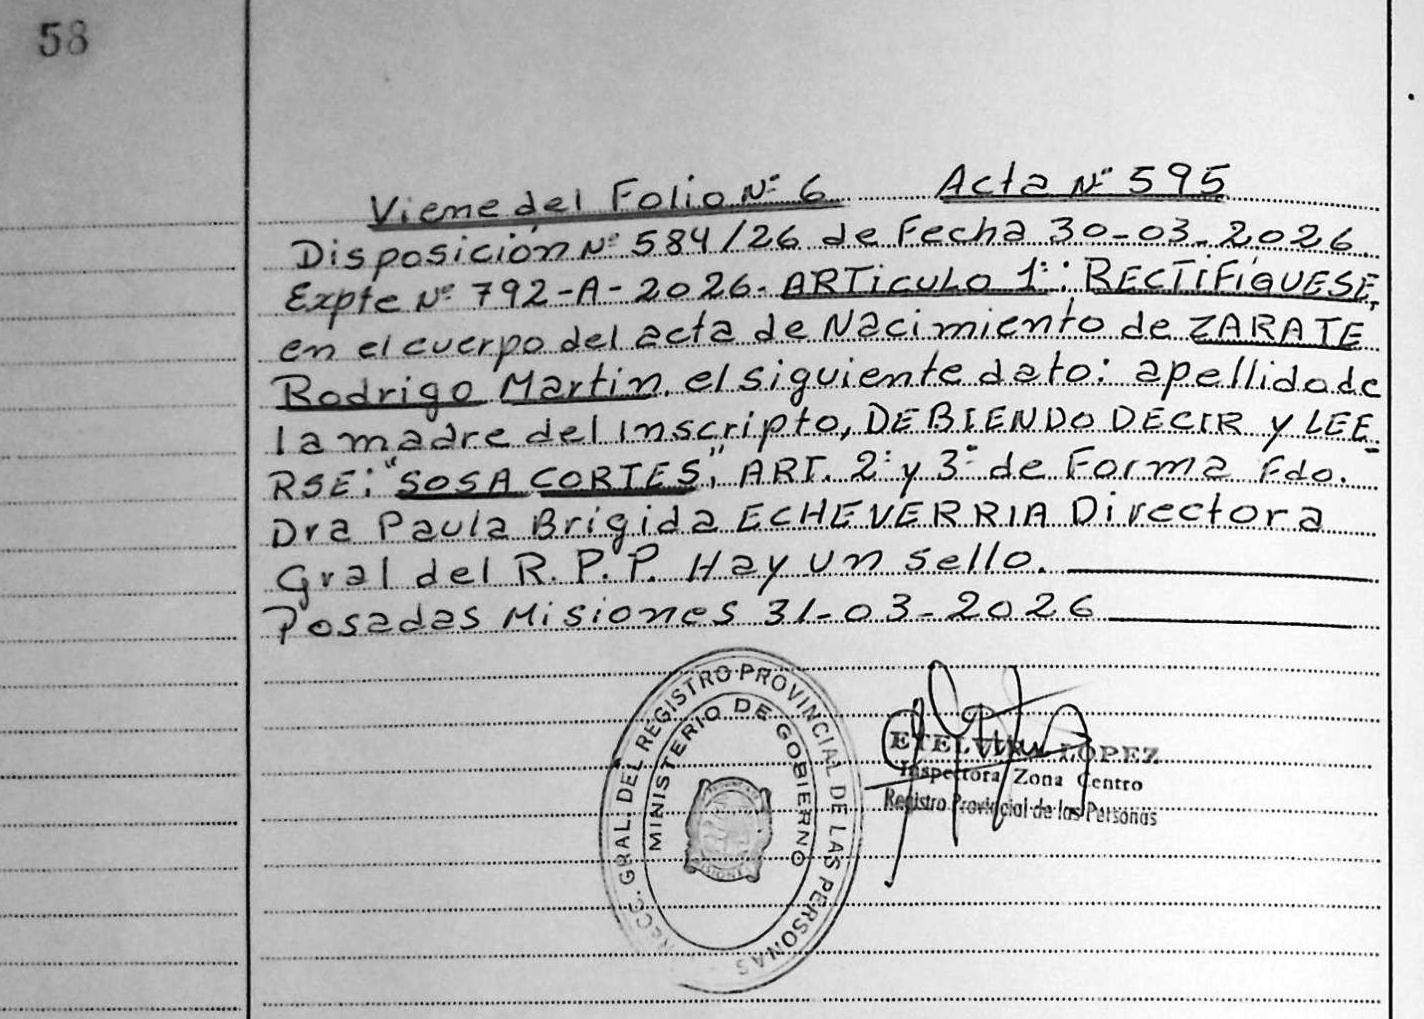 58
Viene del Folio Nº 6 Acta Nº 595
Disposición Nº 584/26 de Fecha 30-03-2026.
Expte Nº 792-A-2026. ARTICULO 1º: RECTIFÍQUESE,
en el cuerpo del acta de Nacimiento de ZARATE
Rodrigo Martin, el siguiente dato: apellido de
la madre del inscripto, DEBIENDO DECIR y LEE-
RSE: "SOSA CORTES", ART. 2º y 3º de Forma Fdo.
Dra Paula Brígida ECHEVERRIA Directora
Gral del R.P.P. Hay un sello.
Posadas Misiones 31-03-2026
GRAL. DEL REGISTRO PROVINCIAL DE LAS PERSONAS
MINISTERIO DE GOBIERNO
ETELVINA LOPEZ
Inspectora Zona Centro
Registro Provincial de las Personas